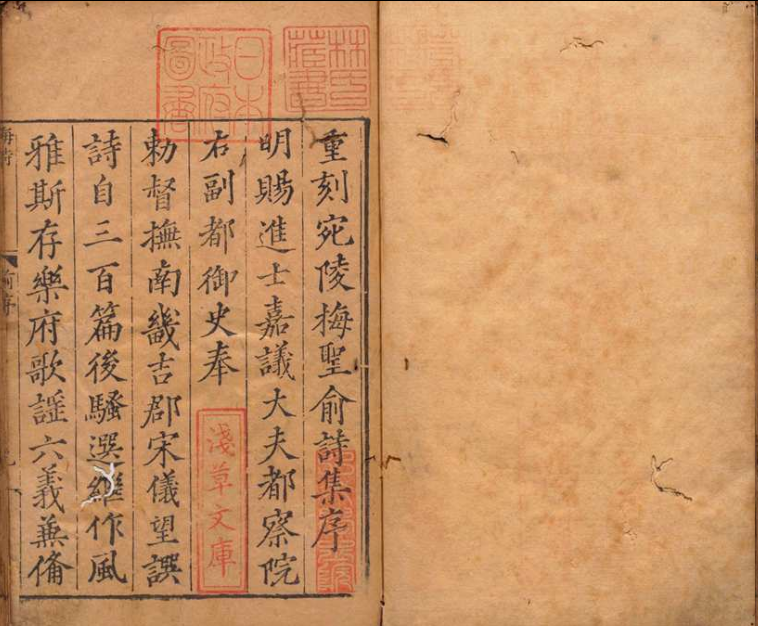 日本政府圖書
林氏藏書
重刻宛陵梅聖俞詩集序
明賜進士嘉議大夫都察院
右副都御史奉
勅督撫南畿吉郡宋儀望譔
詩自三百篇後騷選繼作風
雅斯存樂府歌謡六義兼備
淺草文庫